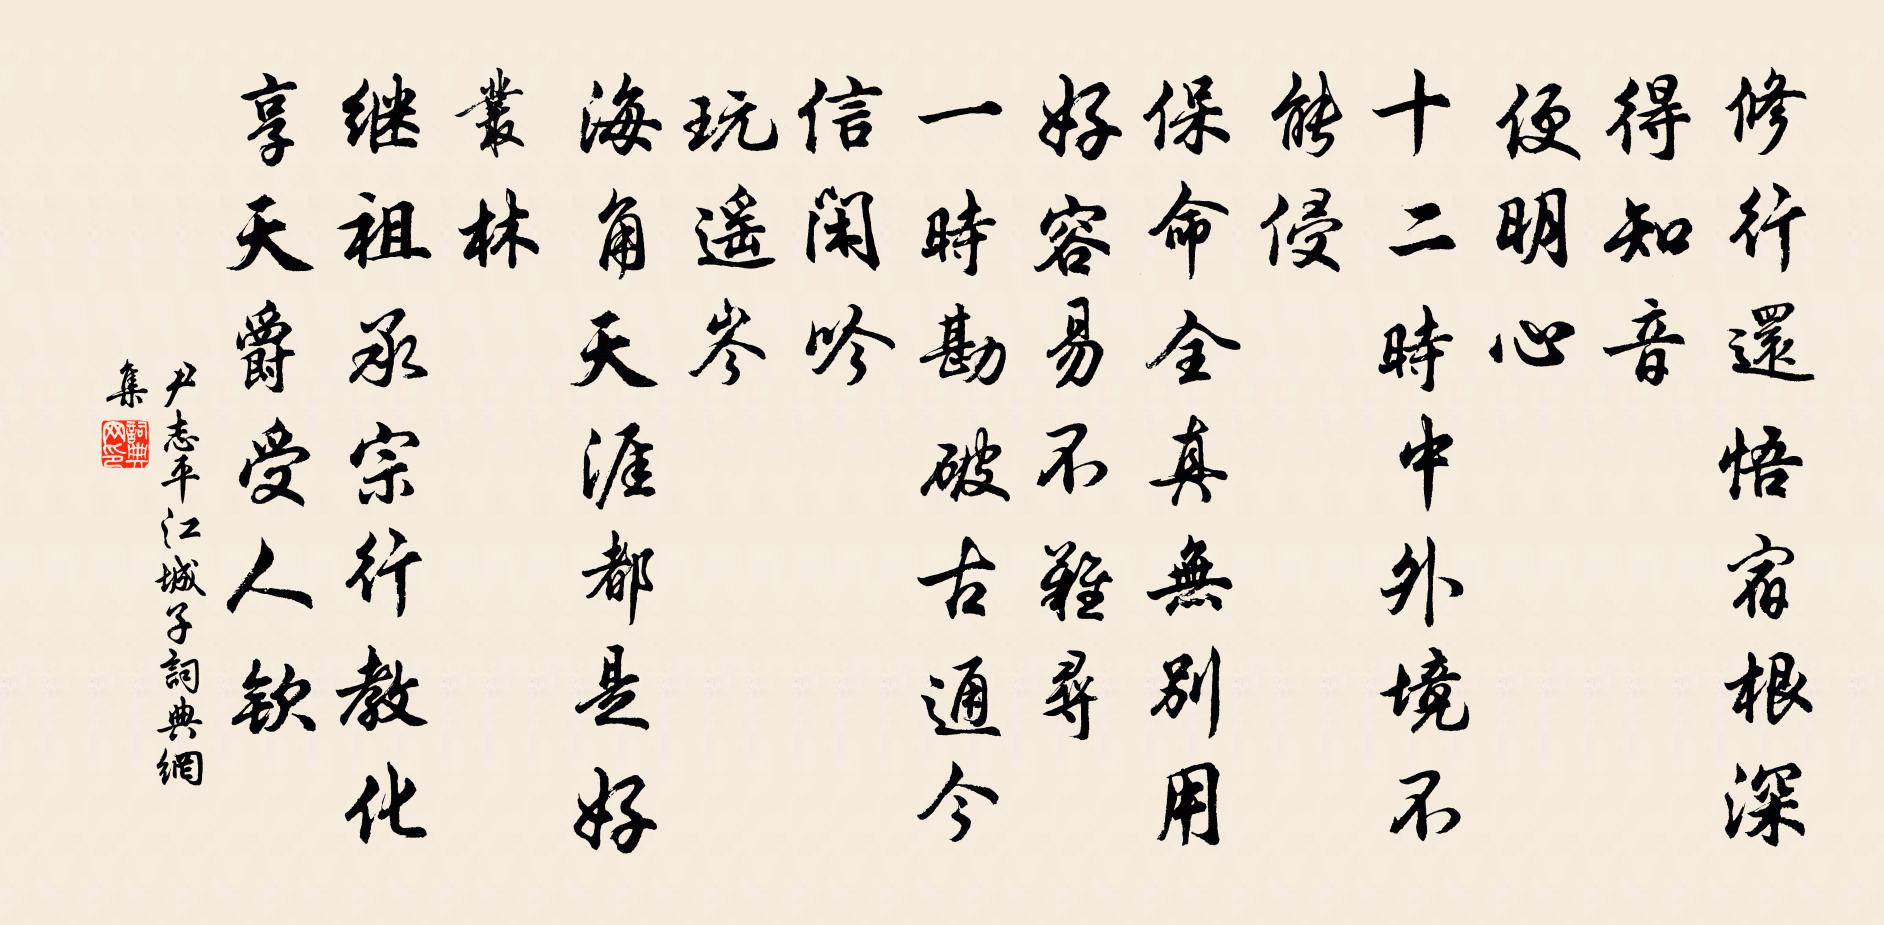 修行還悟宿根深
得知音
便明心
十二時中外境不
能侵
保命全真無別用
好容易不難尋
一時勘破古通今
信閑吟
玩遥岑
海角天涯都是好
叢林
继祖承宗行教化
享天爵受人钦
尹志平江城子詞典網
集
詞典网印